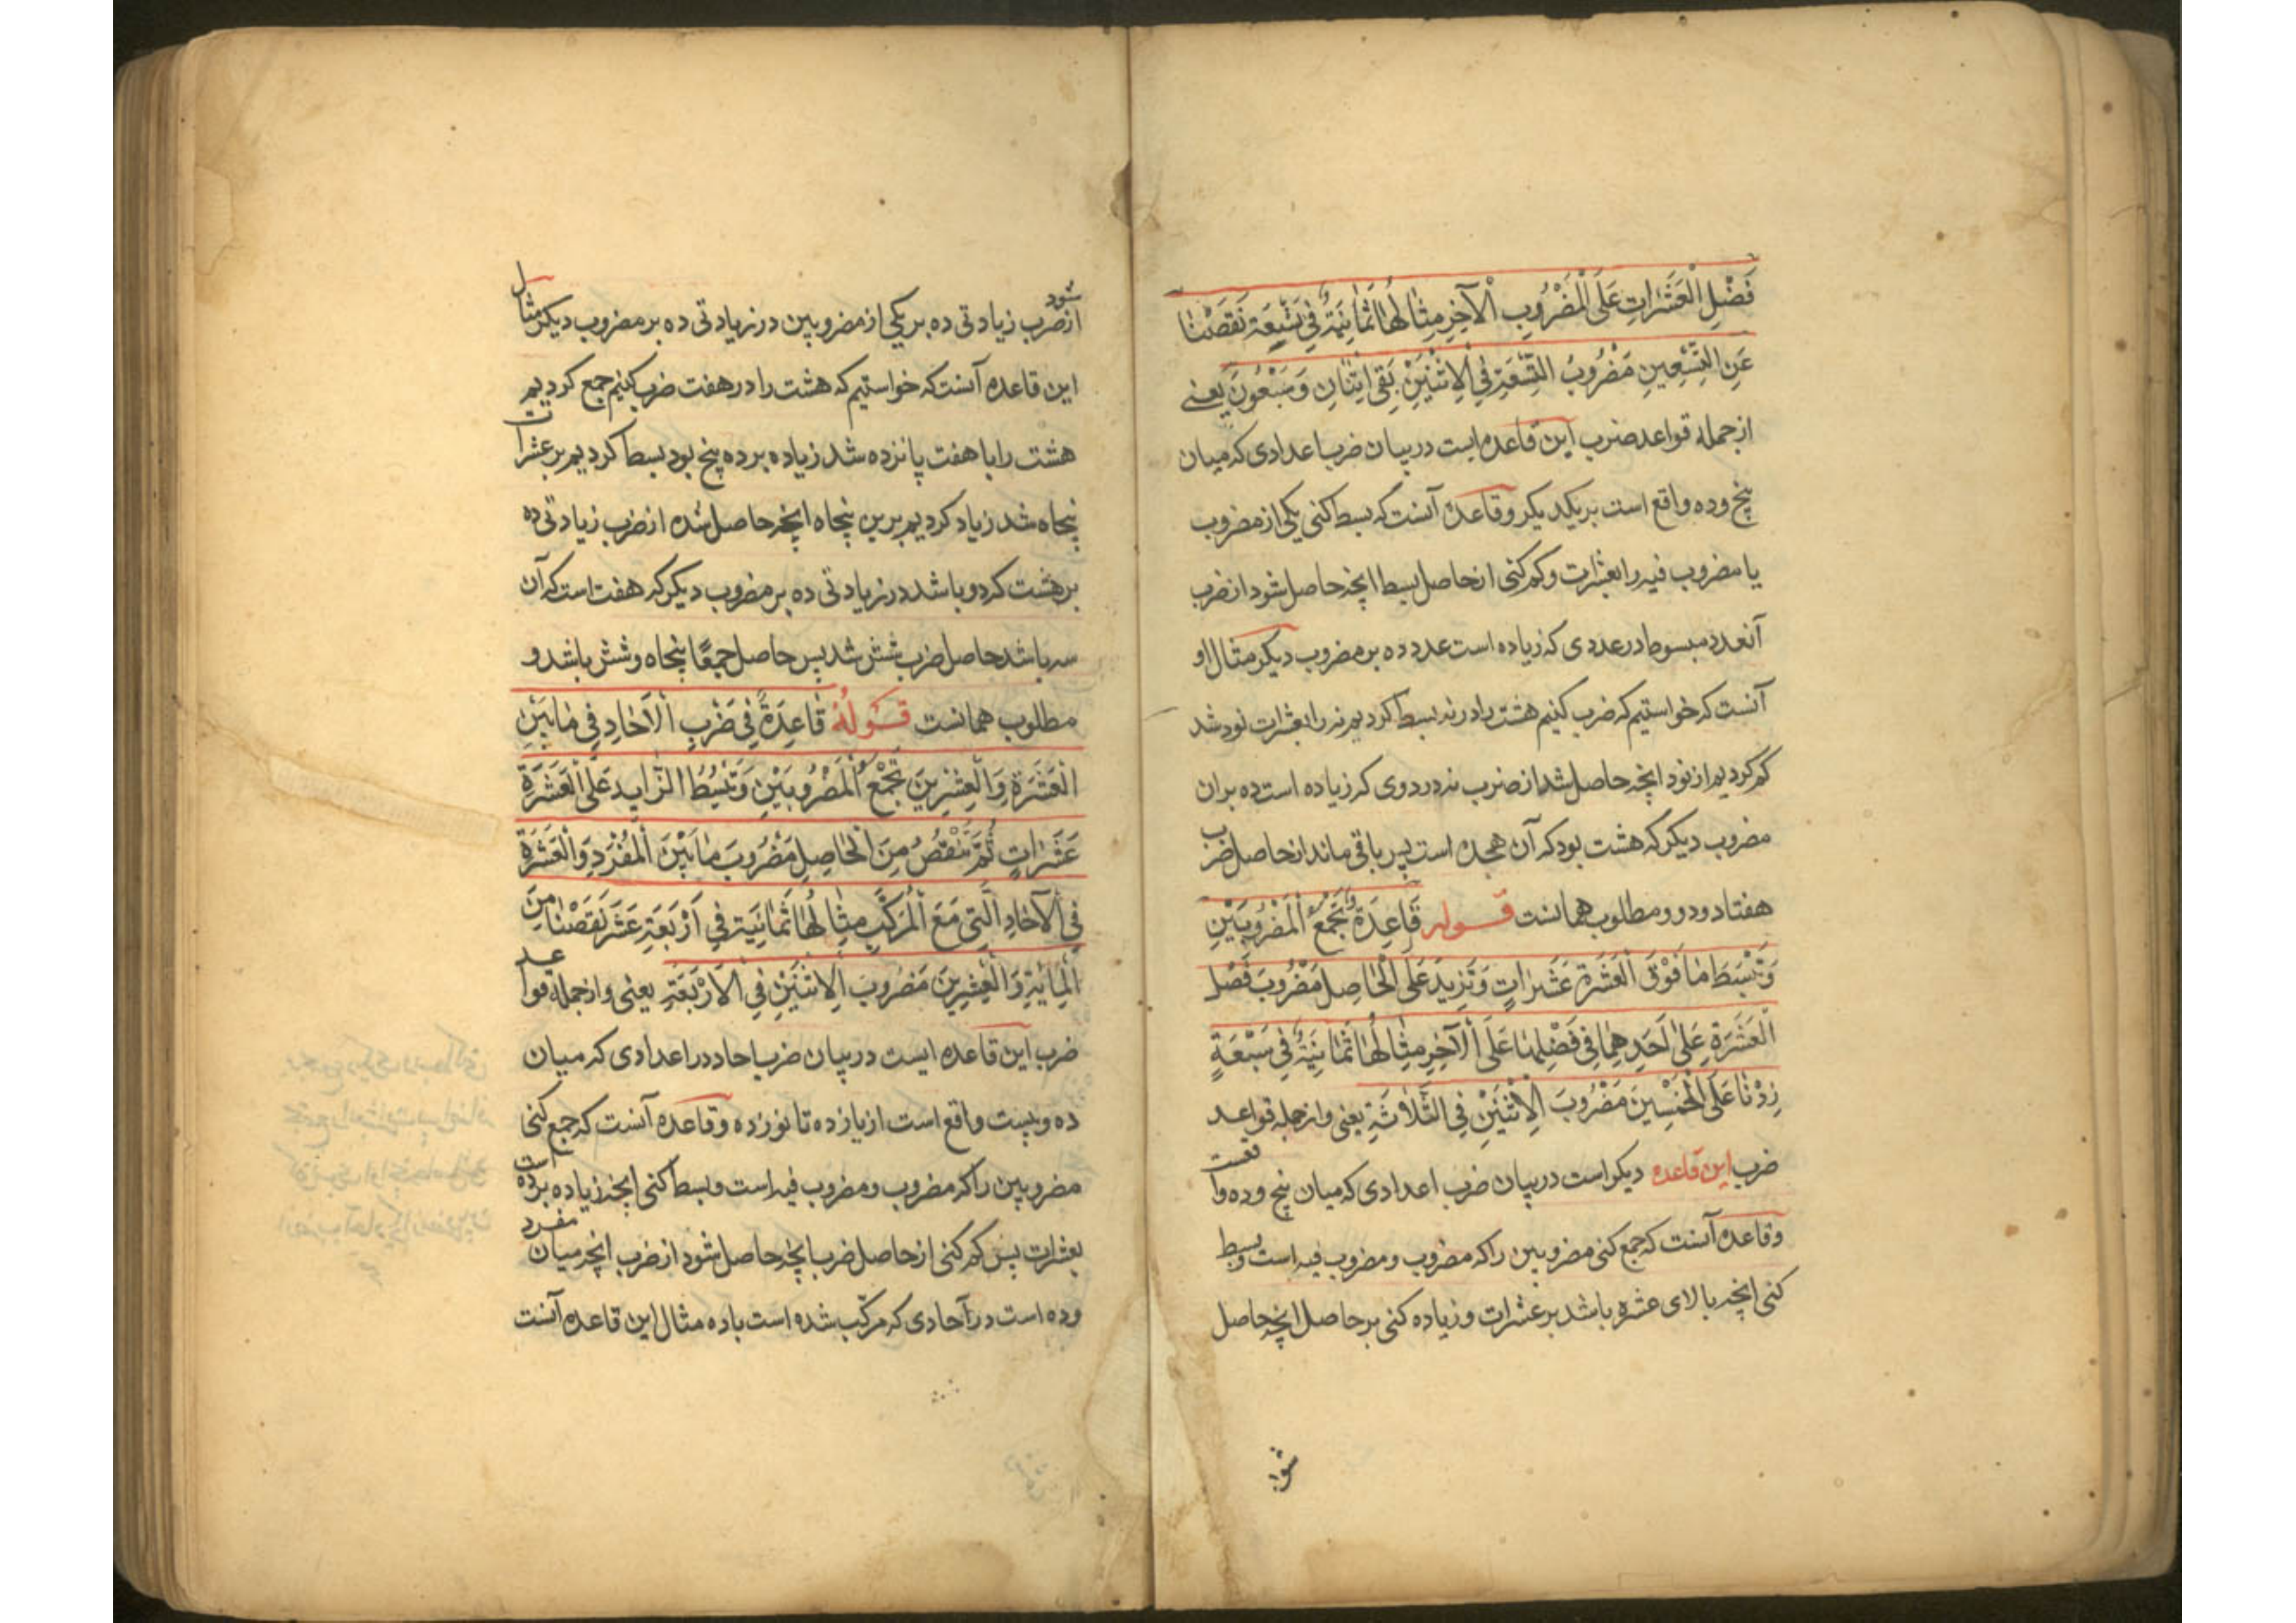 فَضْلِ الْعَشَرَاتِ عَلَى الْمَضْرُوبِ الْآخِرِ مِثَالُهَا ثَمَانِيَةٌ فِي تِسْعَةٍ نَقَصْنَا
عَنِ التِّسْعِينَ مَضْرُوبَ التِّسْعَةِ فِي الْاِثْنَيْنِ بَقِيَ اثْنَانِ وَسَبْعُونَ یعنی
از جمله قواعد ضرب این قاعده ایست در بیان ضرب اعدادی که میان
پنج و ده واقع است بر یکدیکر و قاعده آنست که بسط کنی یکی از مضروب
یا مضروب فیه را بعشرات و کم کنی از حاصل بسط انچه حاصل شود از ضرب
آنعدد مبسوط در عددی که زیاده است عدد ده بر مضروب دیکر مثال او
آنست که خواستیم که ضرب کنیم هشت را در نه بسط کردیم نه را بعشرات نود شد
کم کردیم از نود انچه حاصل شد از ضرب نه در دوی که زیاده است ده بران
مضروب دیکر که هشت بود که آن هجده است پس باقی ماند از حاصل ضرب
هفتاد و دو و مطلوب همانست قوله قَاعِدَةٌ وَتَجْمَعُ الْمَضْرُوبَيْنِ
وَتَبْسُطَ مَا فَوْقَ الْعَشَرَةِ عَشَرَاتٍ وَتَزِيدَ عَلَى الْحَاصِلِ مَضْرُوبَ فَضْلِ
الْعَشَرَةِ عَلَى اَحَدِهِمَا فِي فَضْلِهَا عَلَى الْآخِرِ مِثَالُهَا ثَمَانِيَةٌ فِي سَبْعَةٍ
زِدْنَا عَلَى الْخَمْسِينَ مَضْرُوبَ الْاِثْنَيْنِ فِي الثَّلَاثَةِ یعنی و از جمله قواعد
ضرب این قاعده دیکر است در بیان ضرب اعدادی که میان پنج و ده واقعست
و قاعده آنست که جمع کنی مضروبین را که مضروب و مضروب فیه است و بسط
کنی انچه بالای عشره باشد بر عشرات و زیاده کنی بر حاصل انچه حاصل
شود
از ضرب زیادتی ده بر یکی از مضروبین در زیادتی ده بر مضروب دیکر مثال
این قاعده آنست که خواستیم که هشت را در هفت ضرب کنیم جمع کردیم
هشت را با هفت پانزده شد زیاده بر ده پنج بود بسط کردیم بر عشرات
پنجاه شد زیاد کردیم برین پنجاه انچه حاصل شده از ضرب زیادتی ده
بر هشت که دو باشد در زیادتی ده بر مضروب دیکر که هفت است که آن
سه باشد حاصل ضرب شش شد پس حاصل جمعًا پنجاه و شش باشد و
مطلوب همانست قَوْلُهُ قَاعِدَةٌ فِي ضَرْبِ الْآحَادِ فِي مَا بَيْنَ
الْعَشَرَةِ وَالْعِشْرِينَ تَجْمَعُ الْمَضْرُوبَيْنِ وَتَبْسُطُ الزَّايِدَ عَلَى الْعَشَرَةِ
عَشَرَاتٍ ثُمَّ تَنْقُصُ مِنَ الْحَاصِلِ مَضْرُوبَ مَا بَيْنَ الْمُفْرَدِ وَالْعَشَرَةِ
فِي الْآحَادِ الَّتِي مَعَ الْمُرَكَّبِ مِثَالُهَا ثَمَانِيَةٌ فِي اَرْبَعَةَ عَشَرَ نَقَصْنَا مِنَ
الْمِائَةِ وَالْعِشْرِينَ مَضْرُوبَ الْاِثْنَيْنِ فِي الْاَرْبَعَةِ یعنی و از جمله قواعد
ضرب این قاعده ایست در بیان ضرب احاد در اعدادی که میان
ده و بیست واقع است از یازده تا نوزده و قاعده آنست که جمع کنی
مضروبین را که مضروب و مضروب فیه است و بسط کنی انچه زیاده بر ده است
بعشرات پس کم کنی از حاصل ضرب انچه حاصل شود از ضرب انچه میان مفرد
و ده است در آحادی که مرکّب شده است با ده مثال این قاعده آنست